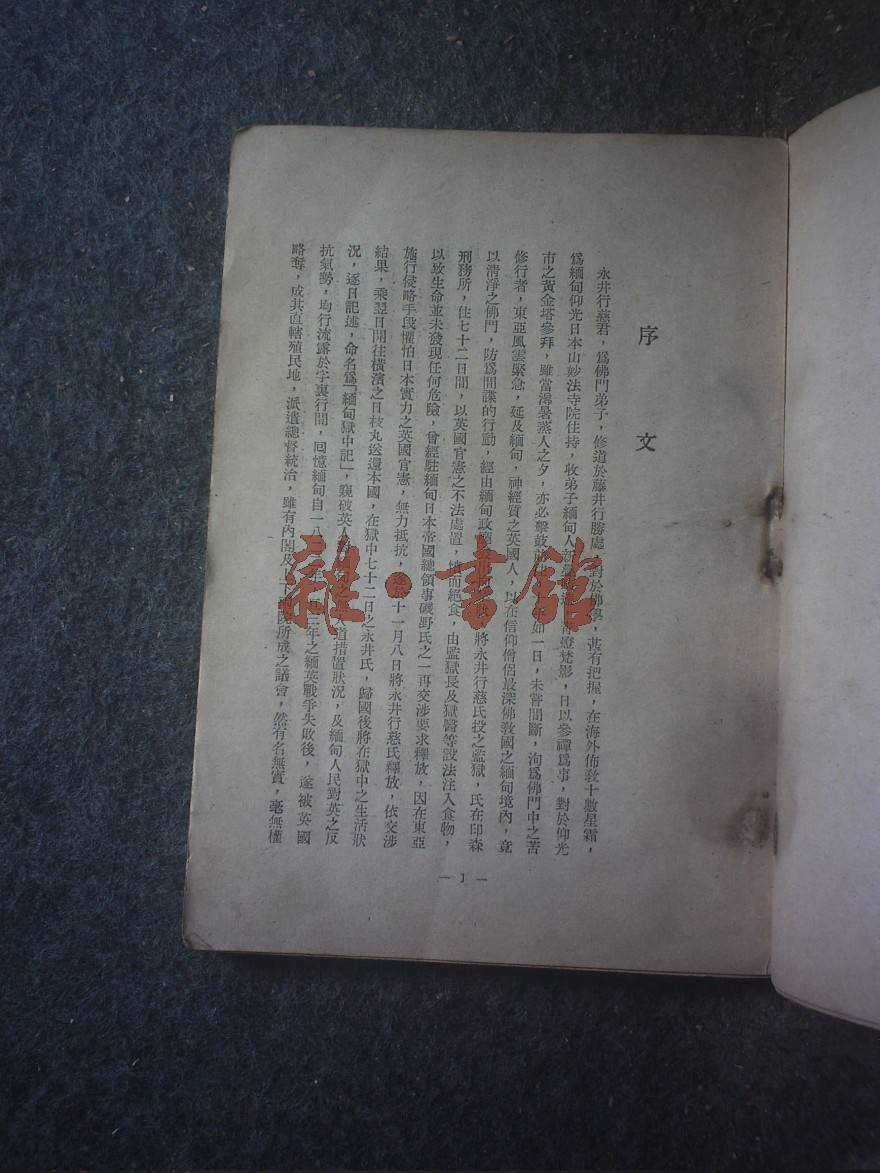 序文
永井行慈君，爲佛門弟子，修道於藤井行勝處，對於佛學，甚有把握，在海外佈敎十數星霜，
爲緬甸仰光日本山妙法寺院住持，收弟子緬甸人新 靑燈梵影，日以參禪爲事，對於仰光
市之黃金塔參拜，雖當溽暑蒸人之夕，亦必擊鼓前 如一日，未嘗間斷，洵爲佛門中之苦
修行者，東亞風雲緊急，延及緬甸，神經質之英國人，以在信仰僧侶最深佛敎國之緬甸境內，竟
以清淨之佛門，防爲間諜的行動，經由緬甸政 將永井行慈氏投之監獄，氏在印森
刑務所，住七十二日間，以英國官憲之不法處置，憤而絕食，由監獄長及獄醫等設法注入食物，
以致生命並未發現任何危險，曾經駐緬甸日本帝國總領事磯野氏之一再交涉要求釋放，因在東亞
施行侵略手段懼怕日本實力之英國官憲，無力抵抗，遂於十一月八日將永井行慈氏釋放，依交涉
結果，乘翌日開往橫濱之日枝丸送還本國，在獄中七十二日之永井氏，歸國後將在獄中之生活狀
況，逐日記述，命名爲「緬甸獄中記」，窺破英人 人道措置狀況，及緬甸人民對英之反
抗氣勢，均行流露於字裏行間，回憶緬甸自一八 三年之緬英戰爭失敗後，遂被英國
略奪，成其直轄殖民地，派遣總督統治，雖有內閣及上下兩院所成之議會，然有名無實，毫無權
— 1 —
雜·書館